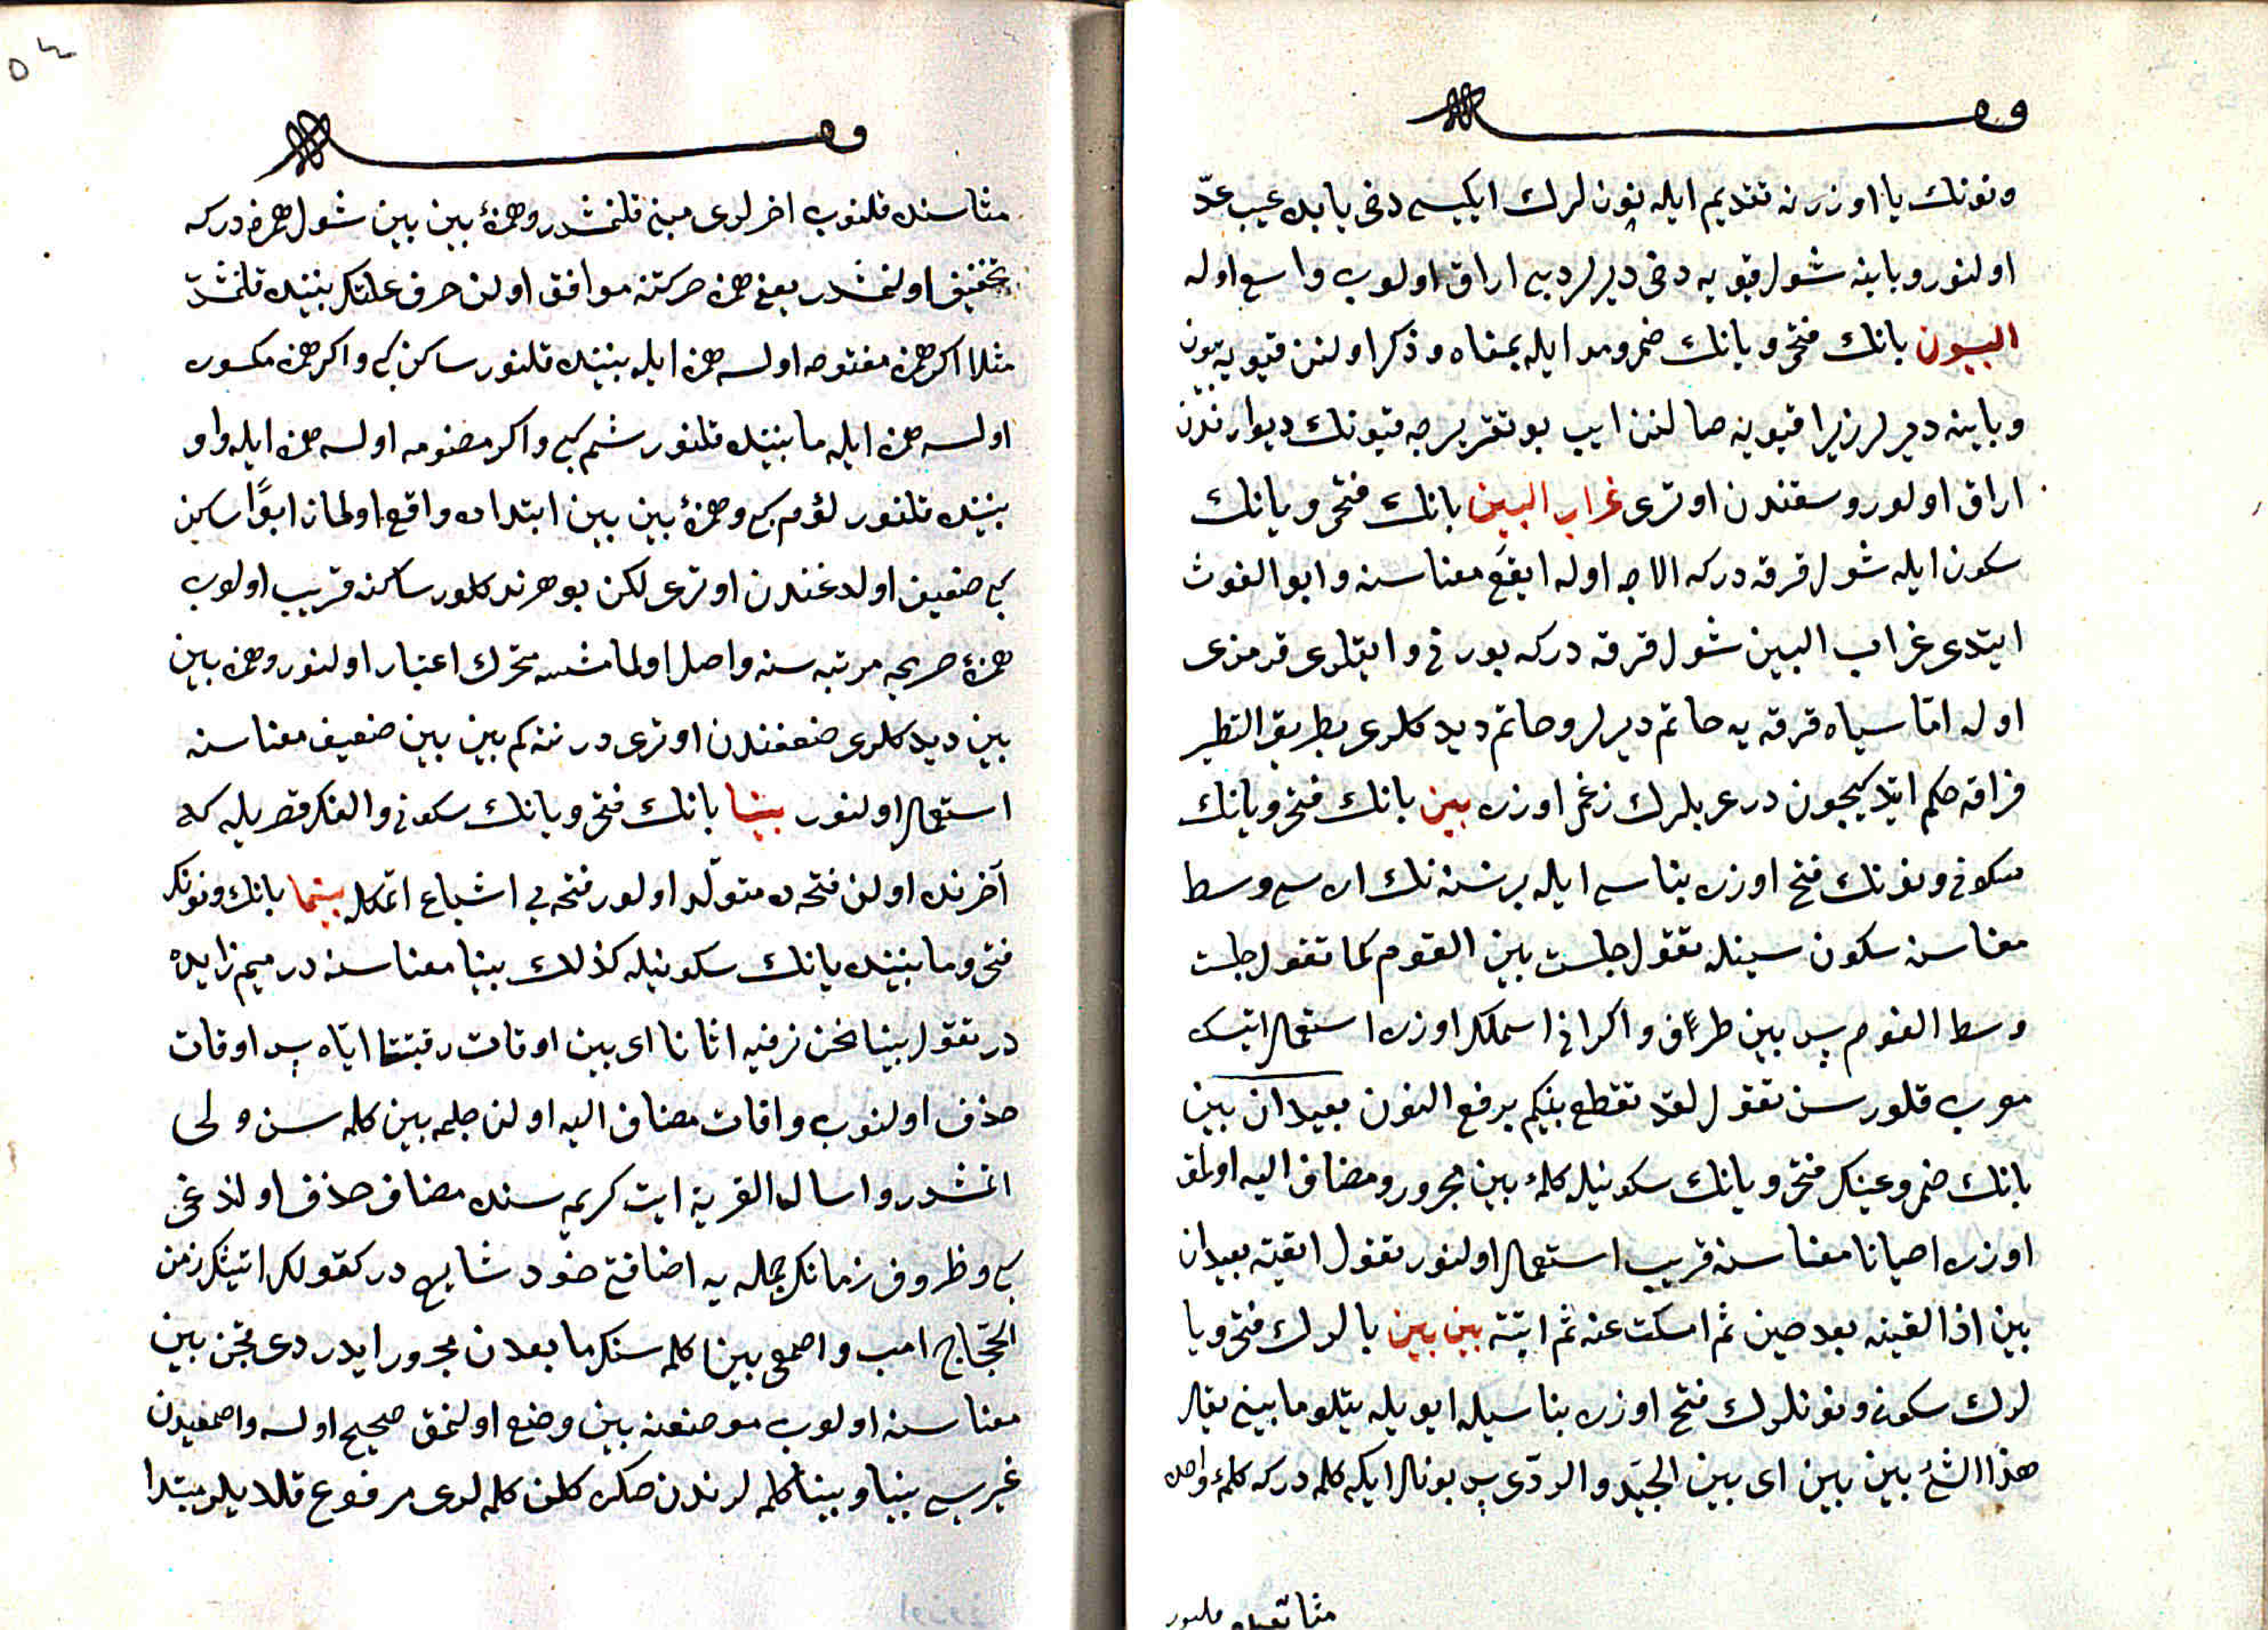 ونونك یا اوزرنه تقدیم ایله نونلرك ایكیسی دخی یا بده عیب عدّ
اولنور و باینه شول قیویه دخی دیرلر دیبی اراق اولوب واسع اوله
البیون بانك فتحی و یانك ضمی و مد ایله بمعناه و ذكر اولنن قیویه بیون
و باینه دیرلر زیرا قیویه صالنن ایپ بو تقریرجه قیونك دیوارندن
اراق اولور وسعتندن اوتری غراب البین بانك فتحی و یانك
سكون ایله شول قرقه در كه الاجه اوله ابقع معناسنه و ابو الغوث
ایتدی غراب البین شول قرقه در كه بورنی و ایقلری قرمزی
اوله امّا سیاه قرقه یه حاتم دیرلر و حاتم دیدكلری بطریق التطیر
فراقه حكم ایتدیكیچون در عربلرك زعمی اوزره بین بانك فتحی و یانك
سكونی و نونك فتح اوزره بناسی ایله بر نسنه نك اره سی وسط
معناسنه سكون سینله تقول جلست بین القوم كما تقول جلست
وسط القوم پس بین ظرفدر و اكر انی اسملك اوزره استعمال ایتسك
معرب قلورسن تقول لقد تقطع بینكم برفع النون بعیدات بین
بانك ضمی و عینك فتحی و یانك سكونیله كلمۀ بین مجرور و مضاف الیه اولمق
اوزره احیانا معناسنه قریب استعمال اولنور تقول لقیته بعیدات
بین اذا لقیته بعد حین ثم امسكت عنه ثم اتیته بین بین بالرك فتحی و یا
لرك سكونی و نونلرك فتح اوزره بناسیله ایو یله یتلو مابینی یقال
هذا الشئ بین بین ای بین الجیّد و الردّی پس بونلر ایكی كلمه در كه كلمۀ واحده
مثابه سنده قلنوب
مثاسنده قلنوب اخرلری مبنی قلنمشدر و همزۀ بین بین شول همزه در كه
تخفیف اولنمشدر یعنی همزه حركتنه موافق اولن حرف علتك بیننده قلنمشدر
مثلا اكر همزه مفتوحه اولسه همزه ایله بیننده قلنور ساكن كبی و اكر همزه مكسوره
اولسه همزه ایله یا بیننده قلنور سئم كبی و اكر مضمومه اولسه همزه ایله واو
بیننده قلنور لؤم كبی و همزۀ بین بین ابتداده واقع اولماز ابدًا ساكن
كبی ضعیف اولدغندن اوتری لكن بو هرنه قدر ساكنه قریب اولوب
همزۀ صریحه مرتبه سنه واصل اولمامشسه متحرك اعتبار اولنور و همزه بین
بین دیدكلری ضعفندن اوتری در نته كم بین بین ضعیف معناسنه
استعمال اولنور بینا بانك فتحی و یانك سكونی و الفك قصریله كه
آخرنده اولن فتحه ده متولّد اولور فتحه یی اشباع اتمكله بینما بانك و نونك
فتحی و مابیننده یانك سكونیله كذلك بینا معناسنه در میم زایده
در تقول بینا نحن نرقبه اتانا ای بین اوقات رقبتنا ایّاه پس اوقات
حذف اولنوب و اوقات مضاف الیه اولن جمله بین كلمه سنه ولی
اتمشدر و اسال القریة ایت كریمه سنده مضاف حذف اولندغی
كبی و ظروف زمانك جمله یه اضافتی خود شایع در كقولك اتیتك زمن
الحجّاج امیر و اصمعی بینا كلمه سنك مابعدن مجرور ایدردی قچن بین
معناسنه اولوب موضعنه بین وضع اولنمق صحیح اولسه و اصمعیدن
غیریسی بینا و بینما كلمه لرندن صكره كلن كلمه لری مرفوع قلدیلر مبتدا